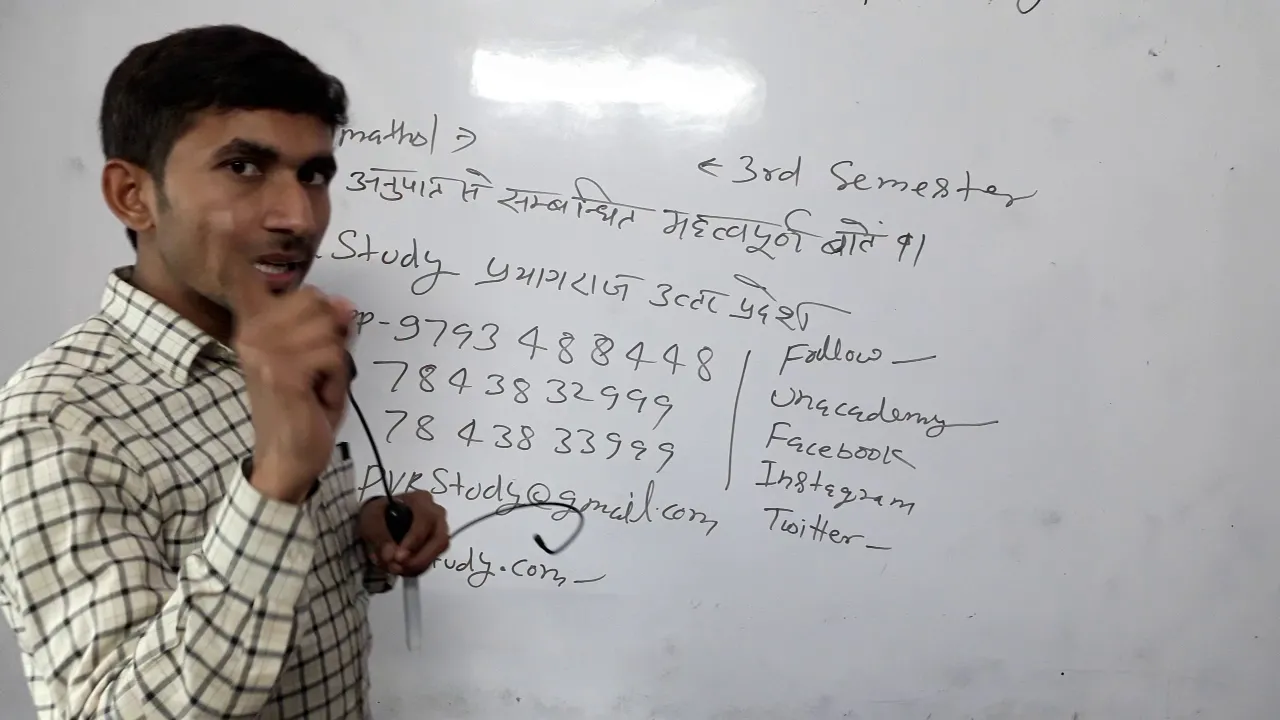 maths ⇒
← 3rd Semester
अनुपात से सम्बन्धित महत्वपूर्ण बातें ।
Study प्रयागराज उत्तर प्रदेश
9793 488448
78438 32999
78438 33999
PVRStudy@gmail.com
tudy.com
Follow
Unacademy
Facebook
Instagram
Twitter